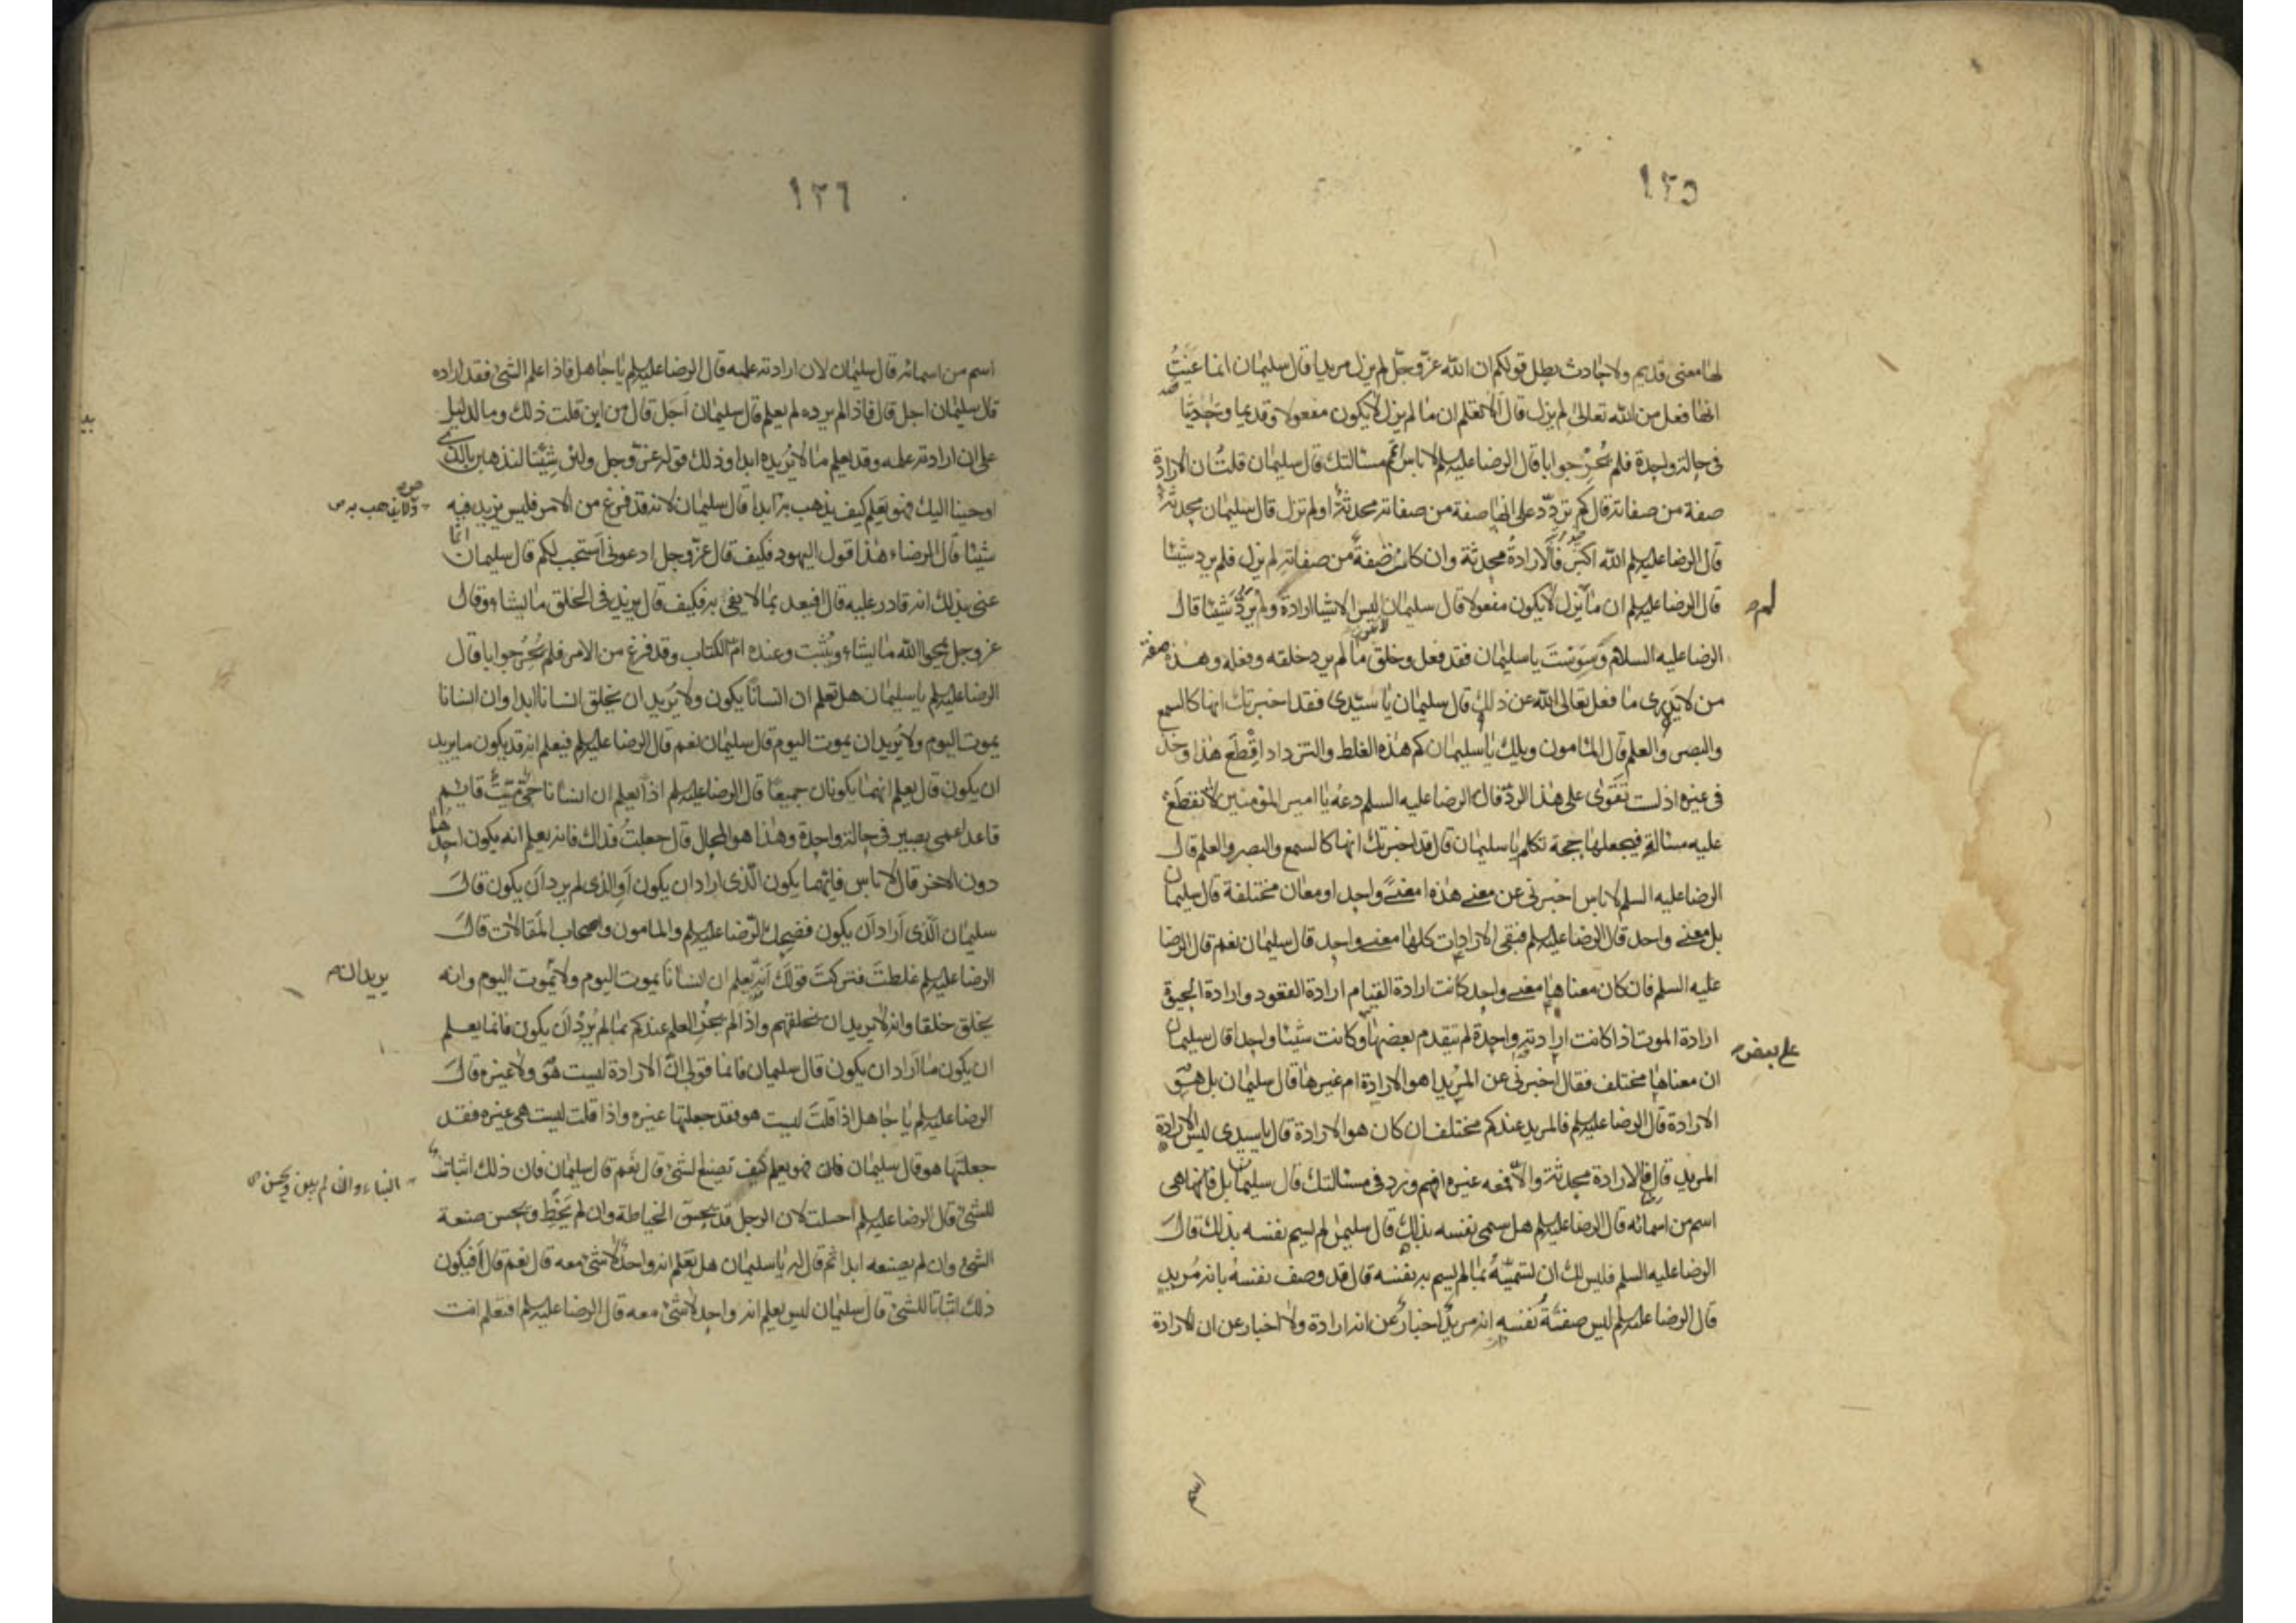 ١٢٥
لها معنى قديم ولا حادث بطل قولكم ان الله عزّ وجلّ لم يزل مريدا قال سليمان انما عنيتُ
انها فعل من الله تعالى لم يزل قال الا تعلم ان ما لم يزل لا يكون مفعولا وقديما وحديثا
فى حالة واحدة فلم يُحِرْ جوابا قال الرضا عليه السلم لا باس اتمّ مسئالتك قال سليمان قلتُ ان الارادة
صفة من صفاته قال كم تردّد على انها صفة من صفاته محدثةٌ او لم تزل قال سليمان محدثةٌ
قال الرضا عليه السلم الله اكبر فالارادةُ محدثة وان كانت صفةً من صفاته لم يزل فلم يرد شيئا
قال الرضا عليه السلم ان ما لم يزل لا يكون مفعولا قال سليمان ليس الاشيا ارادةً ولم يردّ شيئا قال
لم
الرضا عليه السلام وسوستَ يا سليمان فقد فعل وخلق ما لم يرد خلقه وفعله وهذه صفة
من لا يدرى ما فعل تعالى الله عن ذلك قال سليمان يا سيّدى فقد اخبرتك انها كالسمع
والبصر والعلم قال المامون ويلك يا سليمان كم هذه الغلط والترداد اقطع هذا وخذ
فى غيره اذ لست تقوى على هذا الردّ قال الرضا عليه السلم دعه يا امير المؤمنين لا تقطع
عليه مسئالة فيجعلها حجة تكلم يا سليمان قال قد اخبرتك انها كالسمع والبصر والعلم قال
الرضا عليه السلم لا باس اخبرنى عن معنى هذه امعنىً واحد او معان مختلفة قال سليمان
بل معنى واحد قال الرضا عليه السلم فبقى الارادات كلها معنى واحد قال سليمان نعم قال الرضا
عليه السلم فان كان معناها معنى واحد كانت ارادة القيام ارادة القعود وارادة الحيوة
ارادة الموت اذا كانت ارادته واحدة لم يتقدم بعضها وكانت شيئا واحدا قال سليمان
على بعض
ان معناها مختلف فقال اخبرنى عن المريد اهو الارادة ام غيرها قال سليمان بل هو
الارادة قال الرضا عليه السلم فالمريد عندكم مختلف ان كان هو الارادة قال يا سيدى ليس الارادة
المريد قال فالارادة محدثة والا فمعه غيره افهم وزد فى مسئالتك قال سليمان بل فانها هى
اسم من اسمائه قال الرضا عليه السلم هل سمى نفسه بذلك قال سليمن لم يسم نفسه بذلك قال
الرضا عليه السلم فليس لك ان تسميّهُ بما لم يسم به نفسه قال قد وصف نفسهُ بانه مُريد
قال الرضا عليه السلم ليس صفتهُ نفسه انه مريدٌ اخبارٌ عن انه ارادة ولا اخبار عن ان الارادة
اسم
١٢٦
اسم من اسمائه قال سليمان لان ارادته علمه قال الرضا عليه السلم يا جاهل فاذا علم الشئ فقد اراده
قال سليمان اجل قال فاذا لم يرده لم يعلم قال سليمان اَجَل قال من اين قلت ذلك وما الدليل
على ان ارادته علمه وقد يعلم ما لا يُريده ابدا وذلك قوله عزّ وجل ولئن شِئنا لنذهبن بالذى
اوحينا اليك فهو يعلم كيف يذهب به ابدا قال سليمان لانه قد فرغ من الامر فليس يزيد فيه
ولا يذهب به
شيئا قال الرضاء هٰذا قول اليهود فكيف قال عزّ وجل ادعونى اَستجب لكم قال سليمان انما
عنى بذلك انه قادر عليه قال افيعد بما لا يفى به فكيف قال يزيد فى الخلق ما يشاء وقال
عز وجل يمحوا الله ما يشاء ويُثبت وعنده امّ الكتاب وقد فرغ من الامر فلم يُحِرْ جوابا قال
الرضا عليه السلم يا سليمان هل تعلم ان انسانًا يكون ولا يُريد ان يخلق انسانا ابدا وان انسانا
يموت اليوم ولا يُريد ان يموت اليوم قال سليمان نعم قال الرضا عليه السلم فيعلم انه قد يكون ما يريد
ان يكون قال يعلم انهما يكونان جميعًا قال الرضا عليه السلم اذًا يعلم ان انسانا حىّ ميّت قايم
قاعد اعمى بصير فى حالة واحدة وهذا هو المحال قال جعلتُ فداك فانه يعلم انه يكون احدهما
دون الاخر قال لا باس فايّهما يكون الّذى اراد ان يكون اَوِ الذى لم يرد اَن يكون قال
سليمان الّذى اَراد اَن يكون فضحك الرّضا عليه السلم والمامون واصحاب المقالات قال
الرضا عليه السلم غلطتَ فتركتَ قولكَ اَنّه يعلم ان انسانًا يموت اليوم ولا يموت اليوم وانه
يريد ان
يخلق خلقا وانه لا يريد ان يخلقهم واذا لم يجز العلم عندكم بما لم يُردْ اَن يكون فانما يعلم
ان يكون ما اَراد ان يكون قال سليمان فانما قولى انّ الارادة ليست هو ولا غيره قال
الرضا عليه السلم يا جاهل اذا قلتَ ليست هو فقد جعلتها غيره واذا قلت ليست هى غيره فقد
جعلتَها هو قال سليمان فان فهو يعلم كيف تصنع الشئ قال نعم قال سليمان فان ذلك اثبات
البناء وان لم يبن ويحسن
للشئ قال الرضا عليه السلم احلت لان الرجل قد يحسن الخياطة وان لم يَخِط ويحسن صنعة
الشئ وان لم يصنعه ابدا ثم قال له يا سليمان هل يعلم انه واحد لا شئ معه قال نعم قال اَفيكون
ذلك اثباتا للشئ قال سليمان ليس يعلم انه واحد لا شئ معه قال الرضا عليه السلم افتعلم انت